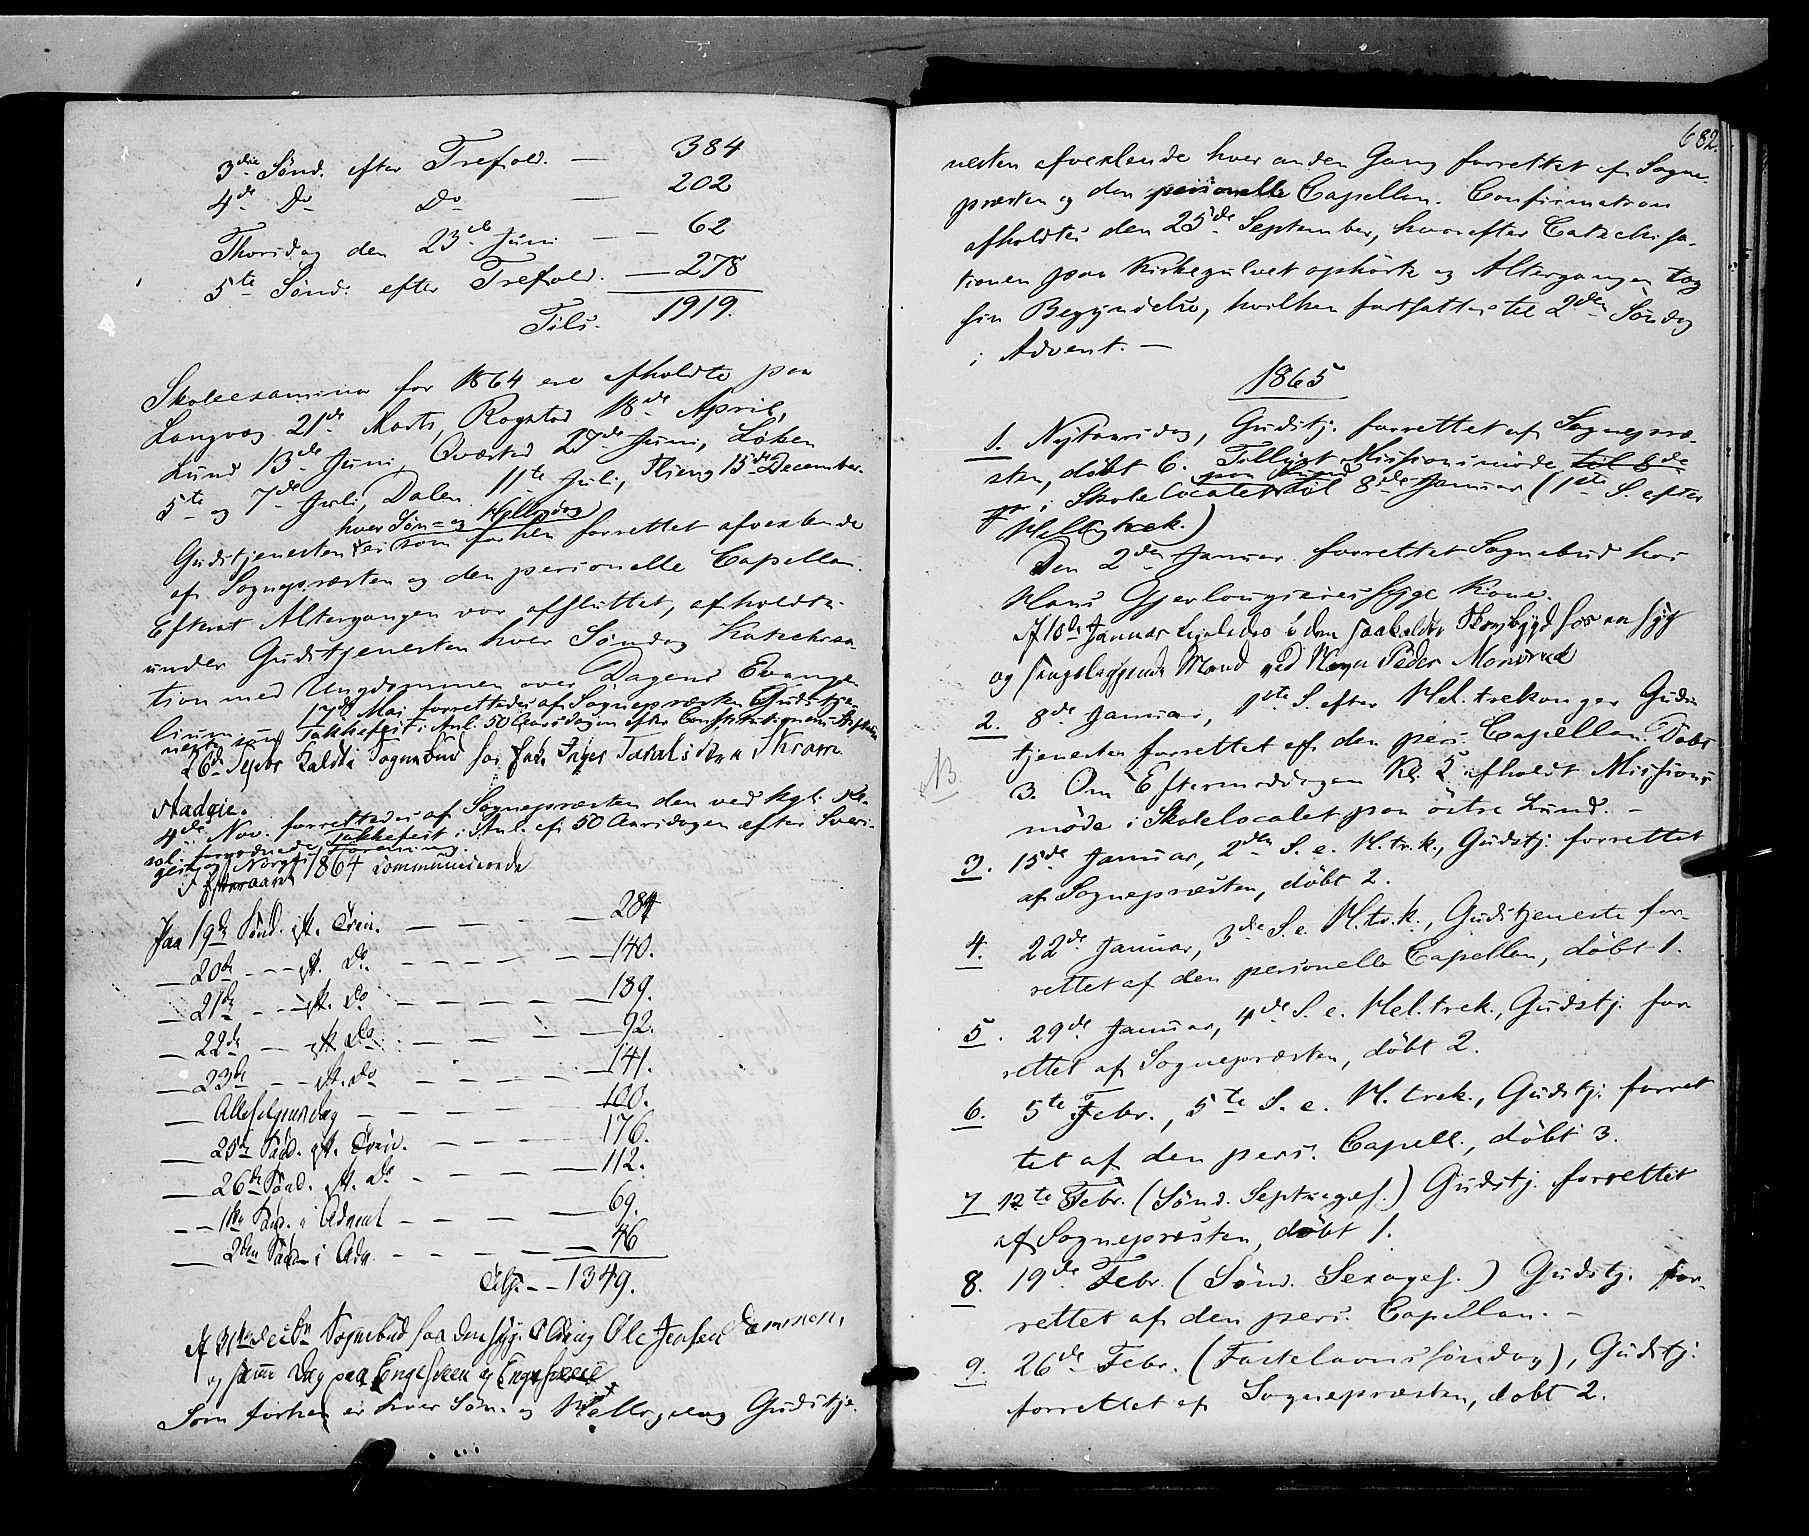 3die Sønd. efter Trefold. — 384
4de Do Do — 202
Thorsdag den 23de Juni — — 62
5te Sønd. efter Trefold. — 278
Tils. 1919.
Skoleexamina for 1864 ere afholdte paa
Langvæg 21de Marts, Rogstad 18de April,
Lund 13de Juni, Qværstad 27de Juni, Løken
5te og 7de Juli, Dalen 11te Juli, 15de December.
hver Søn- og Helligdag
Gudstjenesten er som forhen forrettet afvexlende
af Sognepræsten og den personelle Capellan.
Efterat Altergangen var afsluttet, afholdtes
under Gudstjenesten hver Søndag Katechisa-
tion med Ungdommen over Dagens Evange-
lium.
17de Mai forrettedes af Sognepræsten Gudstje-
neste som Takkefest i Anl. 50 Aarsdagen efter Constitutionens
26de Septbr kaldt i Sognebud hos
Aadgie.
4de Nov. forrettedes af Sognepræsten den ved kgl. Re-
sol. forordnede Takkefest i Anl. af 50 Aarsdagen efter Sveri-
ges og Norges Forening.
I Efteraaret 1864 communicerede
Paa 19de Sønd. eft. Trin. — — — 284
— 20de — — eft. Do. — — — 140.
— 21de — — eft. Do — — — 189.
— 22de — — eft. Do. — — — 92.
— 23de — — eft. Do — — — 141.
— Allehelgensdag — — — 100.
— 25de Sønd. eft. Trin. — — — 176.
— 26de Sønd. eft. Do — — — 112.
— 1ste Søn. i Advent — — — 69.
— 2den Søndag i Adv. — — — 46
Tils. — 1349.
31te Decbr Sognebud hos den syge Olding Ole Jensen
og samme Dag paa Engesveen
Som forhen er hver Søn- og Helligdag Gudstje-
682.
nesten afvexlende hver anden Gang forrettet af Sogne-
præsten og den personelle Capellan. Confirmation
afholdtes den 25de September, hvorefter Catechisa-
tionen paa Kirkegulvet ophörte og Altergangen tog
sin Begyndelse, hvilken fortsattes til 2den Søndag
i Advent. —
1865
1. Nytaarsdag, Gudstj. forrettet af Sognepræ-
sten, döbt 6. Tillyst Missionsmöde til 8de
paa Lund
i Skolelocalet til 8de Januar (1ste S. efter
Helligtrek.)
Den 2den Januar forrettet Sognebud hos
Hans Gjerlougseies syge Kone.
10de Januar i den saakaldte Skovbygd hos en syg
og sengeliggende Mand ved Navn Peder Monsrud
2. 8de Januar, 1ste S. efter Hel. trekonger Guds-
tjenesten forrettet af den pers. Capellan. Döbt
NB 3. Om Eftermiddagen Kl. 5 afholdt Missions-
möde i Skolelocalet paa östre Lund. —
3. 15de Januar, 2den S. e. H. tr. k., Gudstj. forrettet
af Sognepræsten, döbt 2.
4. 22de Januar, 3die S. e. H. tr. k., Gudstjeneste for-
rettet af den personelle Capellan, döbt 1.
5. 29de Januar, 4de S. e. Hel. trek., Gudstj. for-
rettet af Sognepræsten, döbt 2.
6. 5te Febr., 5te S. e. H. trek., Gudstj. forret-
tet af den pers. Capell., döbt 3.
7 12te Febr. (Sönd. Septuages.) Gudstj. forrettet
af Sognepræsten, döbt 1.
8. 19de Febr. (Sönd. Sexages.) Gudstj. for-
rettet af den pers. Capellan. —
9. 26de Febr. (Fastelavnssöndag), Gudstj.
forrettet af Sognepræsten, döbt 2.